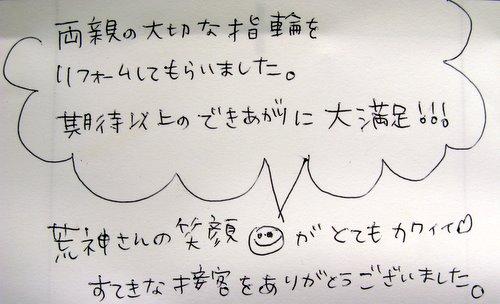 両親の大切な指輪を
リフォームしてもらいました。
期待以上のできあがりに大満足!!!
荒神さんの笑顔がとてもカワイイ♡
すてきな接客をありがとうございました。